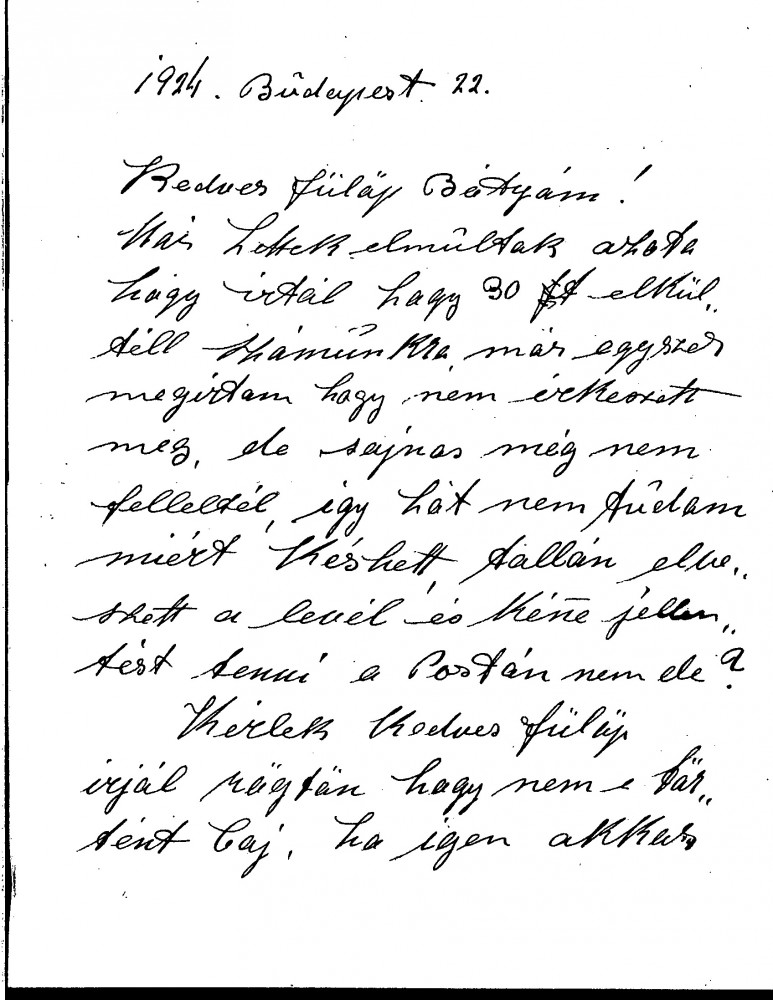 1924. Búdapest 22.
Kedves Fülöp Bátyám!
Már hettek elmúltak azota
hogy irtál hogy 30 ft elkül„
téll számúnkra, már egyszer
megirtam hogy nem érkezett
meg, de sajnos még nem
felleltél, igy hát nem túdom
miért késhett, tallán elve„
szett a levél és kéne jellen„
tést tenni a Postán nem de?
Kérlek Kedves Fülöp
irjál rögtön hogy nem e tör„
tént baj, ha igen akkor